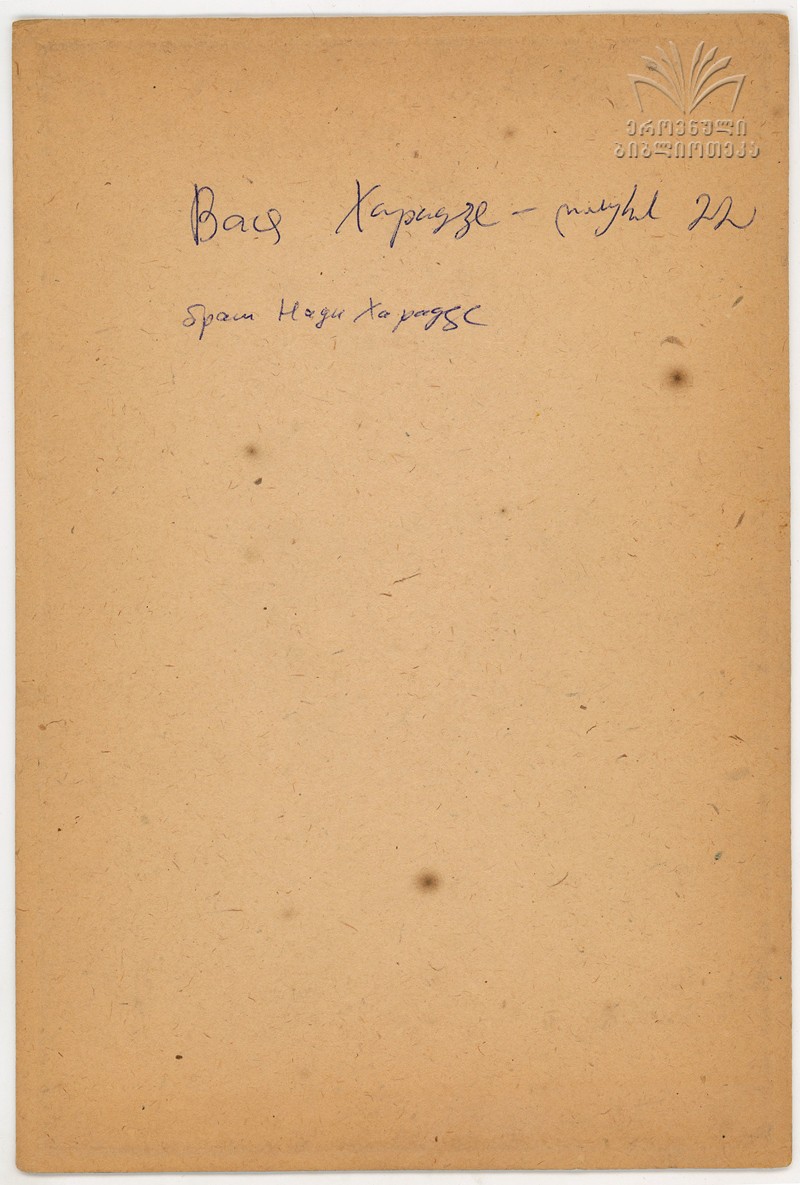 ეროვნული
ბიბლიოთეკა
Вася Харадзе –
брат Нади Харадзе